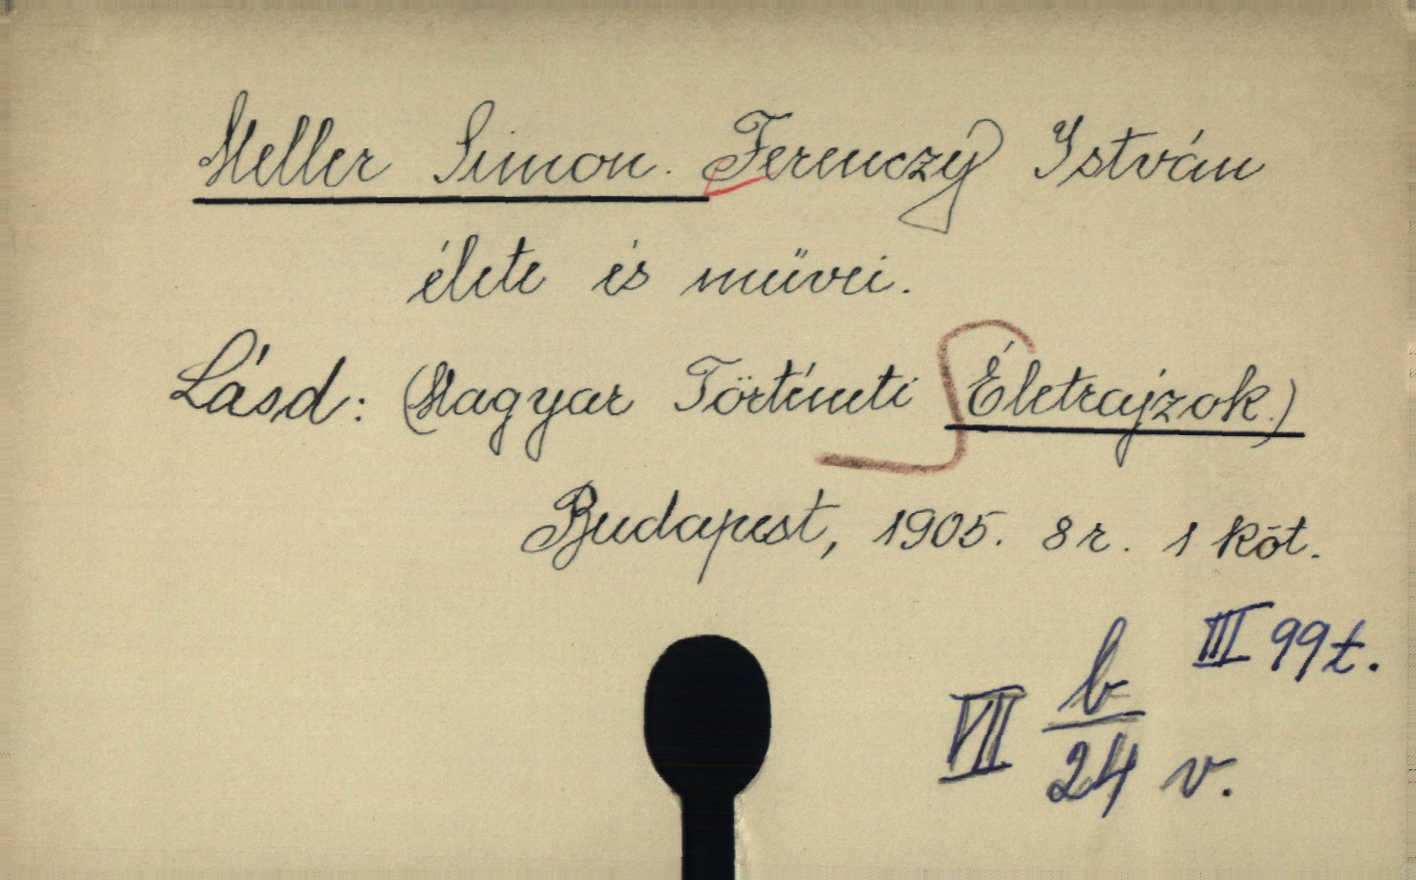 Meller Simon. Ferenczy István
élete és művei.
Lásd: (Magyar Történeti Életrajzok.)
Budapest, 1905. 8 r. 1 köt.
III 99 t.
VII b/24 v.